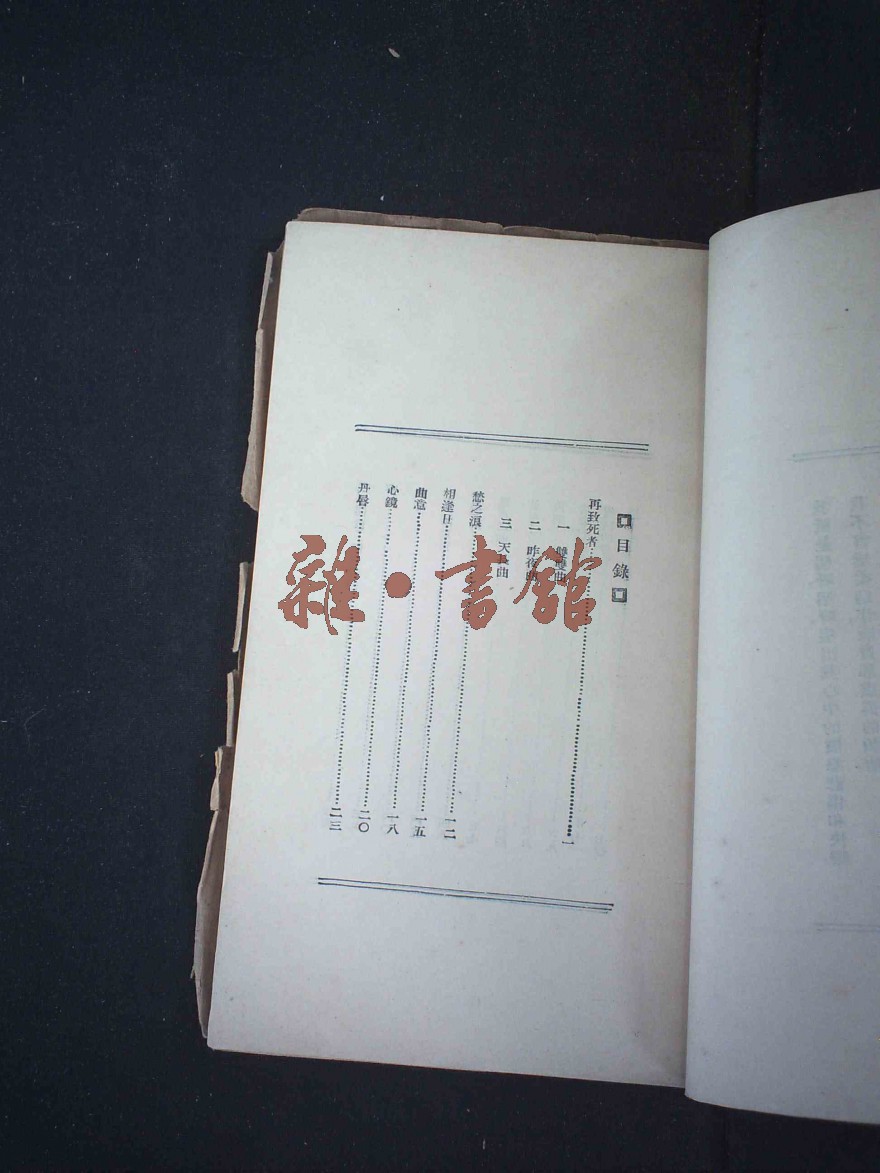 目錄
再致死者……一
一 雙曲
二 昨夜
三 天曲
愁之淚……一二
相逢日……一五
曲意……一八
心鏡……二〇
丹唇……二三
雜·書館